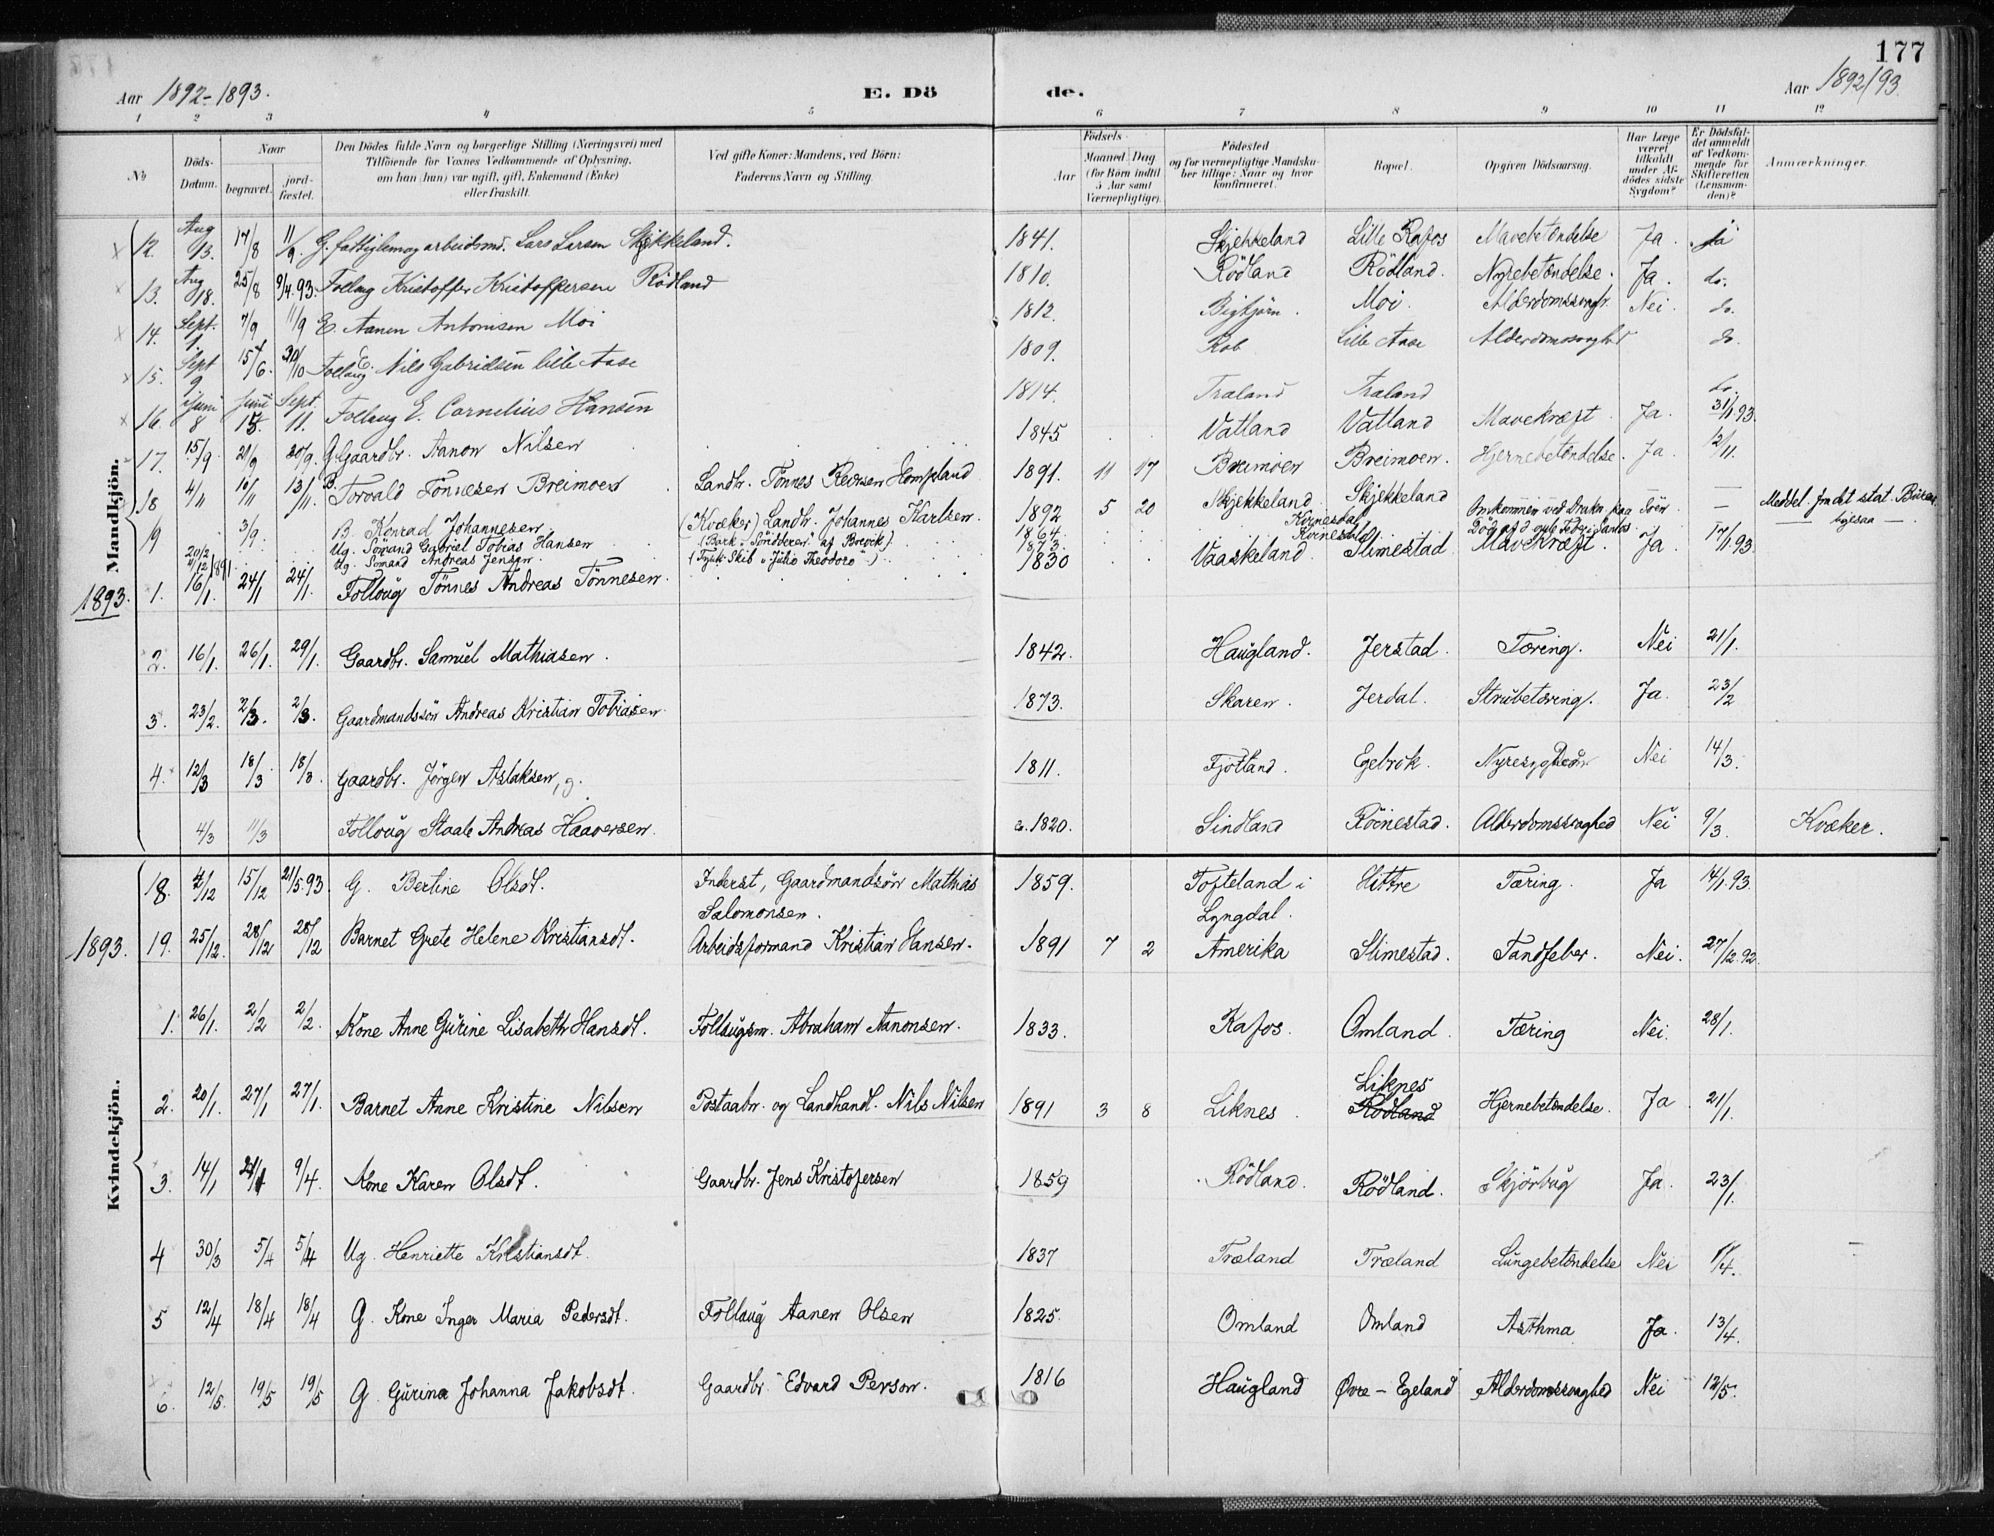 177
Aar 1892-1893.
E. Dö
de.
Aar 1892/93.
1 2 3 4 5 6 7 8 9 10 11 12
No
Döds-Datum.
Naar
begravet.
jord-fæstet.
Den Dödes fulde Navn og borgerlige Stilling (Næringsvei) med
Tilföiende for Voxnes Vedkommende af Oplysning.
om han (hun) var ugift, gift, Enkemand (Enke)
eller fraskilt.
Ved gifte Koner: Mandens, ved Börn:
Faderens Navn og Stilling.
Födsels-
Aar
Maaned Dag
(for Börn indtil
5 Aar samt
Værnepligtige).
Födested
og for værnepligtige Mandska-
ber tillige: Naar og hvor
konfirmeret.
Bopæl.
Opgiven Dödsaarsag.
Har Læge
været
tilkaldt
under Af-
dödes sidste
Sygdom?
Er Dödsfal-
det anmeldt
af Vedkom-
mende for
Skifteretten
(Lensman-
den)?
Anmærkninger.
Mandkjön.
12. Aug 13. 17/8 11/9. G. arbeidsmd. Lars Larsen Skjekkeland. 1841. Skjekkeland Lille Rafos Mavebetændelse Ja. ja
13. Aug 18. 25/8 9/4.93. Follaug Kristoffer Kristoffersen Rödland 1810. Rödland Rödland. Nyrebetændelse. Ja. do.
14. Sept. 1. 7/9 11/9 E. Aanen Antonisen Moi 1812. Bigtjörn. Moi. Alderdomssvagh. Nei. do.
15. Sept 9 30/10 Follaug E. Nils Gabrielsen lille Aase 1809. Lille Aase Alderdomssvaghed do.
16. Juni 8 Juni 15. Sept. 11. Follaug E. Cornelius Hansen 1814. Traland Traland do.
17. 15/9 21/9 20/9. G. Gaardbr. Aanon Nilsen 1845 Vatland Vatland Mavekræft. Ja. 31/1.93.
18 4/11 10/11 13/11. B. Torvald Tönnesen Breimoen Landh. Tönnes Reiersen Hompland 1891. 11 17 Breimoen Breimoen. Hjernebetændelse. Ja. 12/11.
19 3/9. B. Konrad Johannesen. (Kvæker) Landh. Johannes Karlsen. 1892 5 20 Skjekkeland Skjekkeland —
20/2 Ug. Sömand Gabriel Tobias Hansen (Bark. "Sönderen" af Brevik) 1864. Kvinesdal Omkommen ved Soen — Meddel. fra det stat. Büreau
4/12 1891. Ug. Sömand Andreas Jensen. (Tysk Skib "Julio Theodoro") 1873. Kvinesdal Död — ligesaa —.
1893.
1. 16/1. 24/1 24/1. Follaug Tönnes Andreas Tönnesen. 1830 Vaaskeland Slimestad Mavekræft. Ja. 17/1.93.
2. 16/1. 26/1. 29/1. Gaardbr. Samuel Mathiasen. 1842. Haugland. Jerstad. Tæring. Nei 21/1.
3. 23/2. 2/3. 2/3. Gaardmandssön Andreas Kristian Tobiasen. 1873. Skaren. Jerdal. Strubetæring. Ja. 23/2
4. 12/3 18/3 18/3. Gaardbr. Jörgen Aslaksen, g. 1811. Fjotland. Egebrok. Nyresygdom Nei 14/3.
4/3 11/3 Follaug Staale Andreas Haaversen. c. 1820. Sindland Röinestad. Alderdomssvaghed Nei 9/3. Kvæker.
Kvindekjön.
18. 4/12 15/12 21/5.93. G. Bertine Olsdt. Inderst, Gaardmandssön Mathias 1859. Tofteland i Hittre Tæring. Ja 14/1.93.
Salomonsen. Lyngdal.
1893. 19. 25/12. 28/12 28/12 Barnet Grete Helene Kristiansdt. Arbeidsformand Kristian Hansen. 1891 7 2 Amerika Slimestad. Tandfeber. Nei. 27/12.92.
1. 26/1. 2/2 2/2. Kone Anne Gurine Lisabeth Hansdt. Follaugsm. Abraham Aanonsen. 1833. Rafos. Omland. Tæring Nei. 28/1.
Liknes
2. 20/1. 27/1 27/1. Barnet Anne Kristine Nilsen Postaabn. og Landhandl. Nils Nilsen 1891 3 8 Liknes. Rödland Hjernebetændelse. Ja. 21/1.
3. 14/1 21/1 9/4. Kone Karen Olsdt. Gaardbr. Jens Kristofersen 1859 Rödland. Rödland. Skjörbug Ja. 23/1.
4 30/3 5/4 5/4 Ug. Henriette Kristiansdt. 1837 Træland Træland Lungebetændelse Nei
5 12/4 18/4 18/4 G. Kone Inger Maria Pedersdt. Follaug Aanen Olsen 1825. Omland Omland Asthma Ja. 13/4.
6. 12/5. 19/5 19/5 G. Gurina Johanna Jakobsdt. Gaardbr. Edvard Person. 1816 Haugland Øvre-Egeland Alderdomssvaghed Nei 12/5.